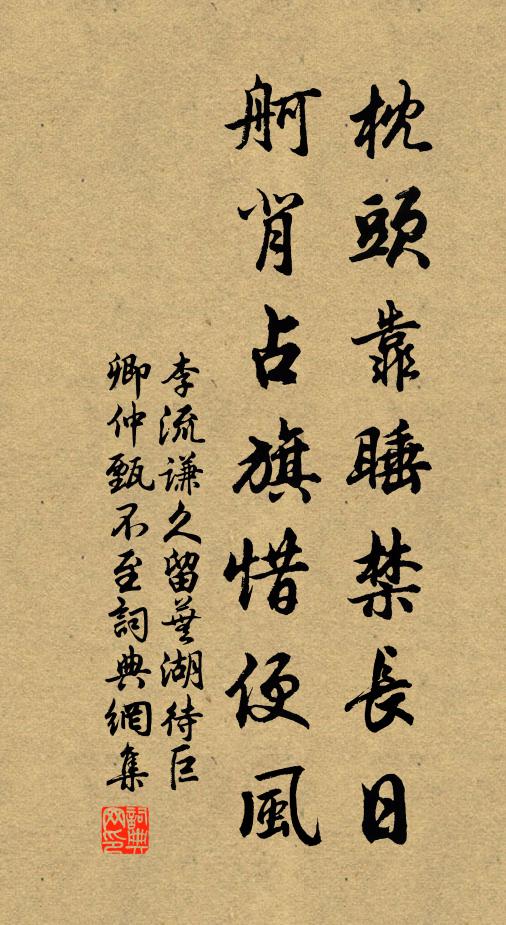 枕頭靠睡禁長日
舸背占旗惜便風
李流謙久留蕪湖待巨
卿仲甄不至詞典網集
詞典網印